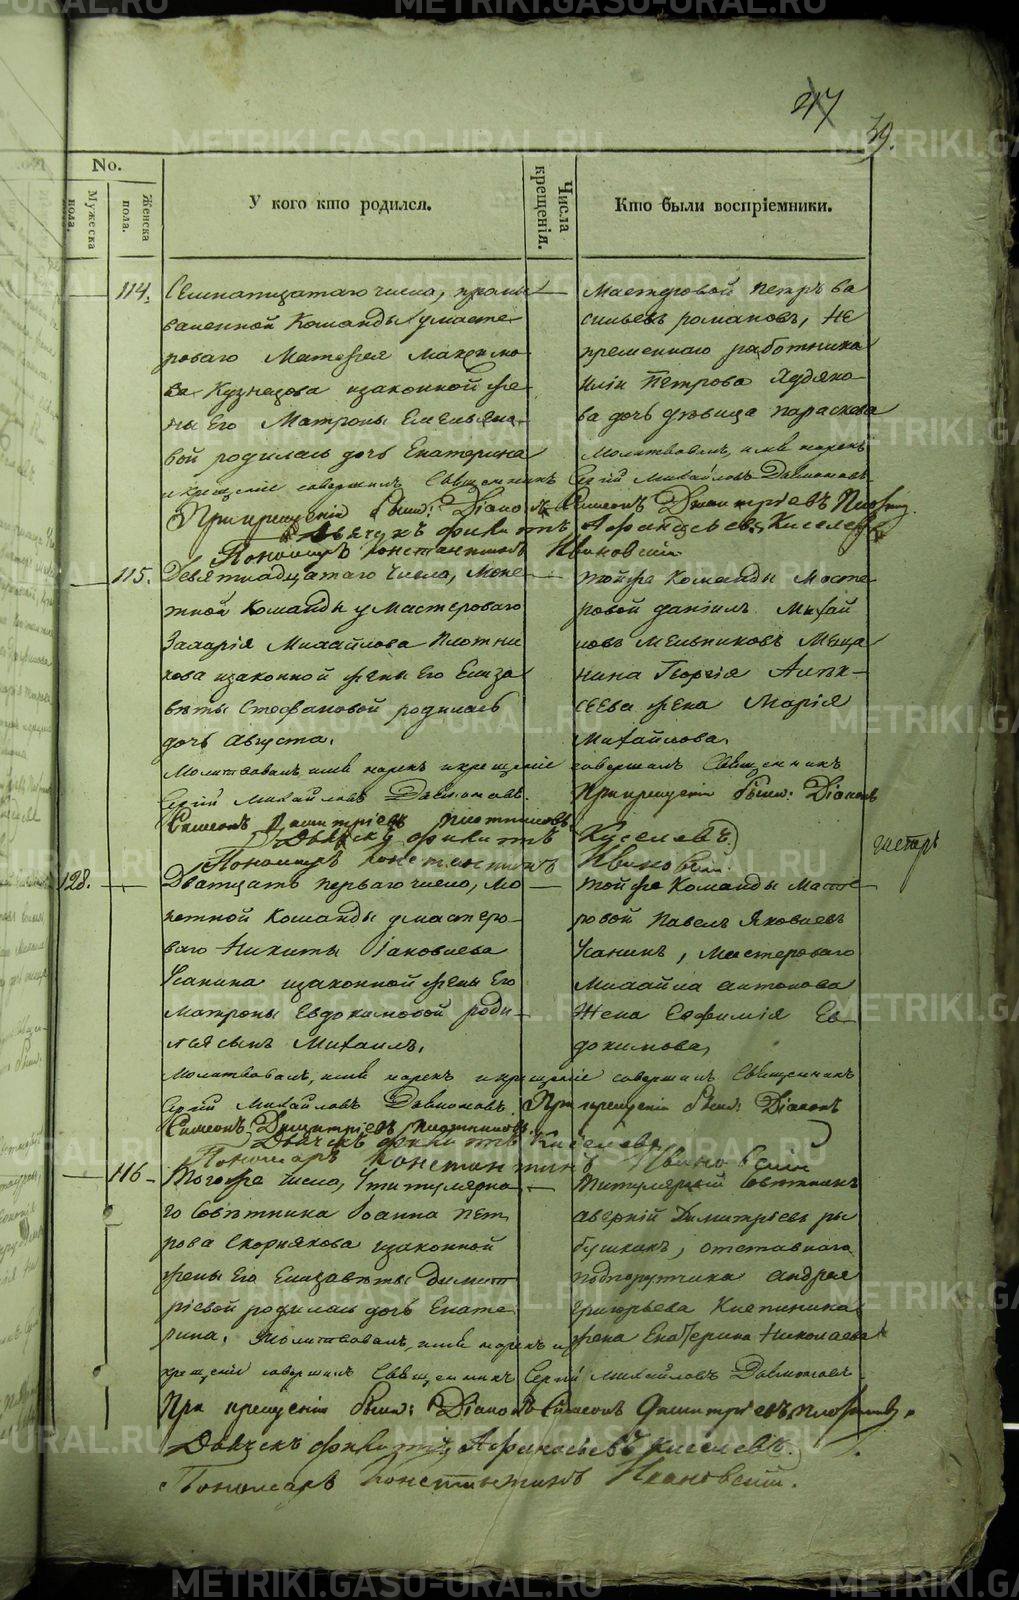 47
39.
No.
Мужеска пола.
Женска пола.
У кого кто родился.
Числа крещенія.
Кто были воспріемники.
114.
Семнатцатаго числа, промы
валенной Команды умасте
роваго Матфея Максимо
ва Кузнецова изаконной же
ны Его Матроны Емельяно
вой родилась дочь Екатерина
Мастеровой Петръ ва
сильевъ романовъ, Не
пременнаго работника
Иліи Петрова Худяко
ва дочь девица параскова
Молитвовалъ, имя нарекъ
и крещеніе совершилъ Священникъ Сергій Михайловъ Давмоновъ
При крещеніи были: Діаконъ Симеонъ Димитріевъ Плотник
Дьячекъ Филитъ Афанасьевъ Киселевъ
Пономарь Константинъ Ивановскій
115.
Девятнадцатаго числа, Моне
тной Команды умастероваго
Захарія Михайлова Плотни
кова изаконной жены Его Елиза
веты Стефановой родилась
дочь Августа.
тойже Команды Масте
ровой Даніилъ Михай
ловъ Мельниковъ Меща
нина Георгія Алек
сеева жена Марія
Михайлова,
Молитвовалъ, имя нарекъ икрещеніе совершилъ Священникъ
Сергій Михайловъ Давмоновъ. При крещеніи были: Діаконъ
Симеонъ Димитріевъ Плотниковъ
Дьячекъ Филитъ Киселевъ
Пономарь Константинъ Ивановскій
128.
Дватцать перваго число, Мо
нетной Команды умастеро
ваго Никиты Іаковлева
Усанина изаконной жены Его
Матроны Евдокимовой роди
лся сынъ Михаилъ.
тойже Команды Масте
ровой Павелъ Яковлевъ
Усанинъ, Мастероваго
Михайла антонова
Жена Евфимія Ев
докимова,
Молитвовалъ, имя нарекъ икрещеніе совершилъ Священникъ
Сергій Михайловъ Давмоновъ. При крещеніи были: Діаконъ
Симеонъ Димитріевъ Плотниковъ
Дьячекъ Филитъ Киселевъ
Пономарь Константинъ Ивановскій
116
Тогоже числа, Утитулярна
го Советника Іоанна Пет
рова Скорнякова изаконной
жены Его Елизаветы Димит
ріевой родилась дочь Екате
рина. Молитвовалъ, имя нарекъ и
Титулярный Советникъ
аверкій Димитріевъ ры
бушкинъ, отставнаго
подпорутчика андрея
григорьева Клепинина
жена Екатерина Николаева
крещеніе совершилъ Священникъ Сергій Михайловъ Давмоновъ
При крещеніи были: Діаконъ Симеонъ Димитріевъ Плотниковъ
Дьячекъ Филитъ Афанасьевъ Киселевъ.
Пономарь Константинъ Ивановскій.
METRIKI.GASO-URAL.RU